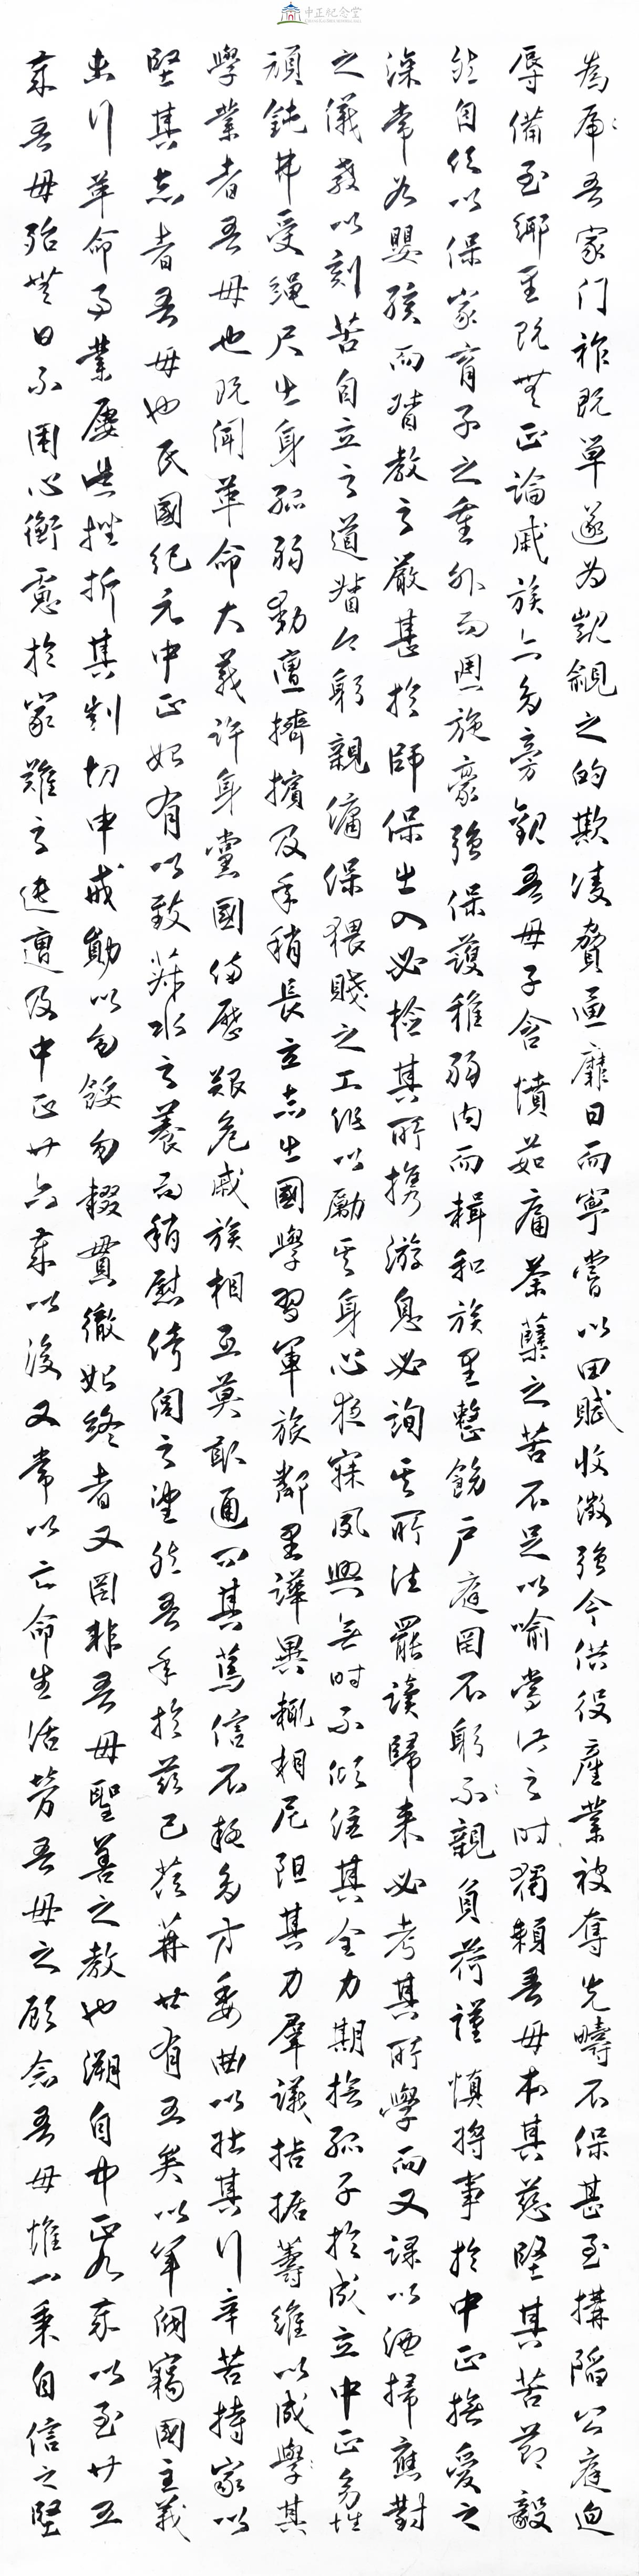 中正紀念堂
為虐吾家門祚既單遂為覬覦之的欺凌脅逼靡日而寧嘗以田賦收徵強令供役產業被奪先疇不保甚至搆陷公庭迫
辱備至鄉里既無正論戚族亦多旁觀吾母子含憤茹痛荼蘗之苦不足以喻當此之時獨賴吾母本其慈堅其苦節毅
然自任以保家育子之重外而周施豪強保護稚弱內而輯和族里整飭戶庭罔不躬親負荷謹慎將事於中正撫愛之
深常如嬰孩而督教之嚴甚於師保出入必檢其所攜游息必詢其所往罷讀歸來必考其所學而又課以洒掃應對
之儀教以刻苦自立之道督令躬親傭保猥賤之工役以勵其身心夜寐夙興無時不傾注其全力期撫孤子於成立中正多性
頑鈍弗受繩尺出身孤弱動遭擠擯及年稍長立志出國學習軍旅鄰里譁異輒相尼阻其力羣議拮据籌維以成學其
學業者吾母也既聞革命大義許身黨國備歷艱危戚族相互莫敢通問其篤信不移多方委曲以壯其行辛苦持家以
堅其志者吾母也民國紀元中正始有以致菽水之養而稍慰倚閭之望然吾年於茲已荏苒廿有五矣以軍閥竊國主義
未行革命事業屢遭挫折其剴切申戒勖以勿餒勿輟貫徹始終者又罔非吾母聖善之教也溯自中正九歲以至廿五
歲吾母殆無日不困心衡慮於家難之迍邅及中正廿六歲以後又常以亡命生活勞吾母之顧念吾母惟一秉自信之堅